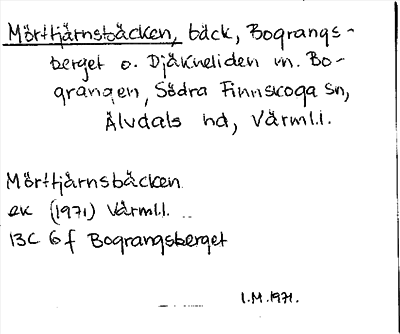 Mörttjärnsbäcken, bäck, Bograngs-
berget o. Djäkneliden m. Bo-
grangen, Södra Finnskoga sn,
Älvdals hd, Värml.l.
Mörttjärnsbäcken
ek (1971) Värml.l.
13C 6f Bograngsberget
I.M.1971.